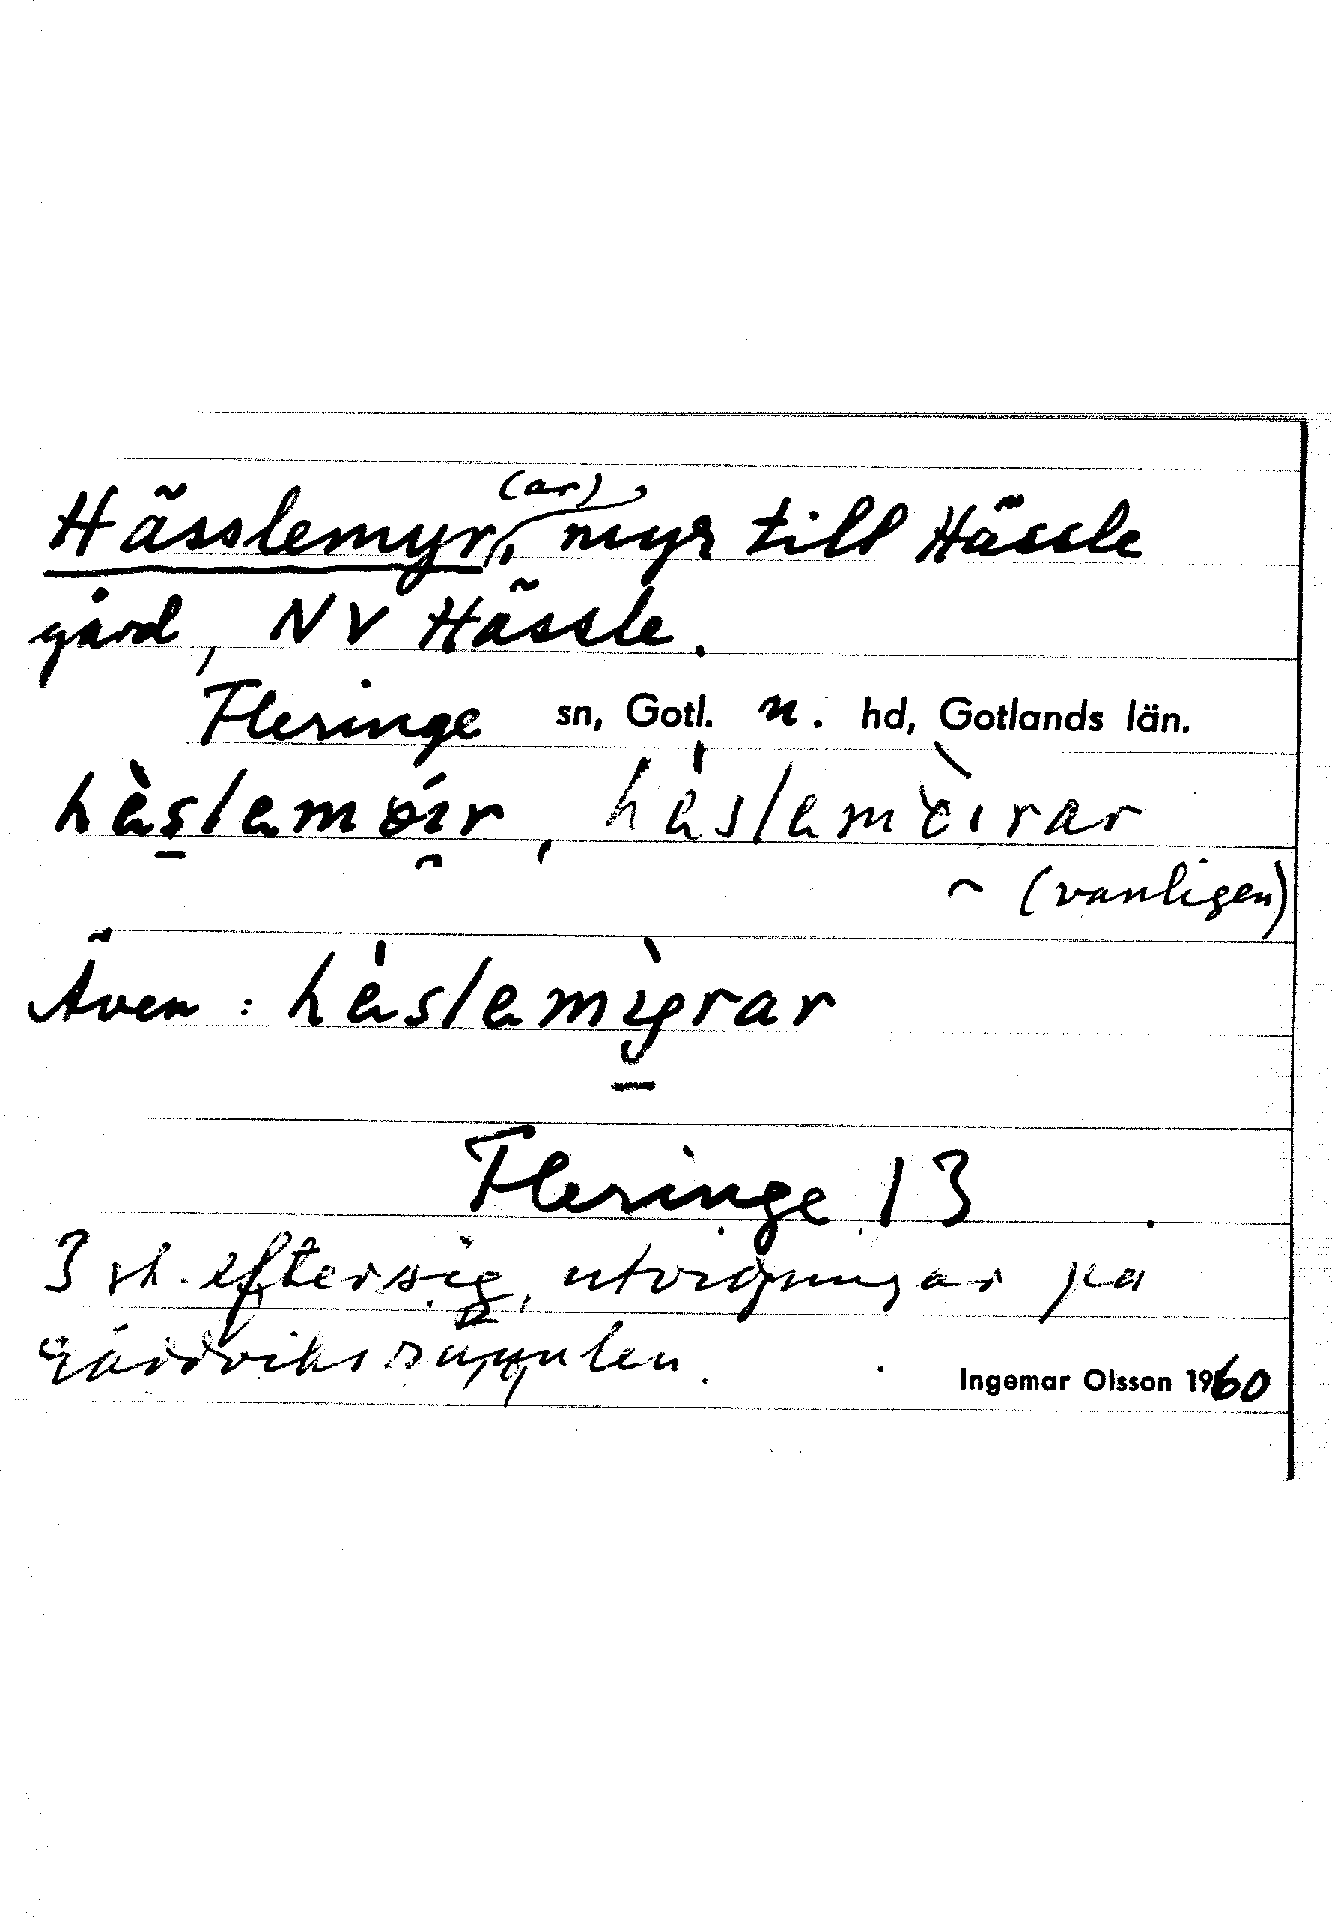 Hässlemyr(ar), myr till Hässle
gård, NV Hässle.
Fleringe sn, Gotl. n. hd, Gotlands län.
hèslemöir, hèslemöirar
(vanligen)
Även: hèslemyrar
Fleringe 13
3 st. efter sig, utvidgningar på
Ingemar Olsson 1960